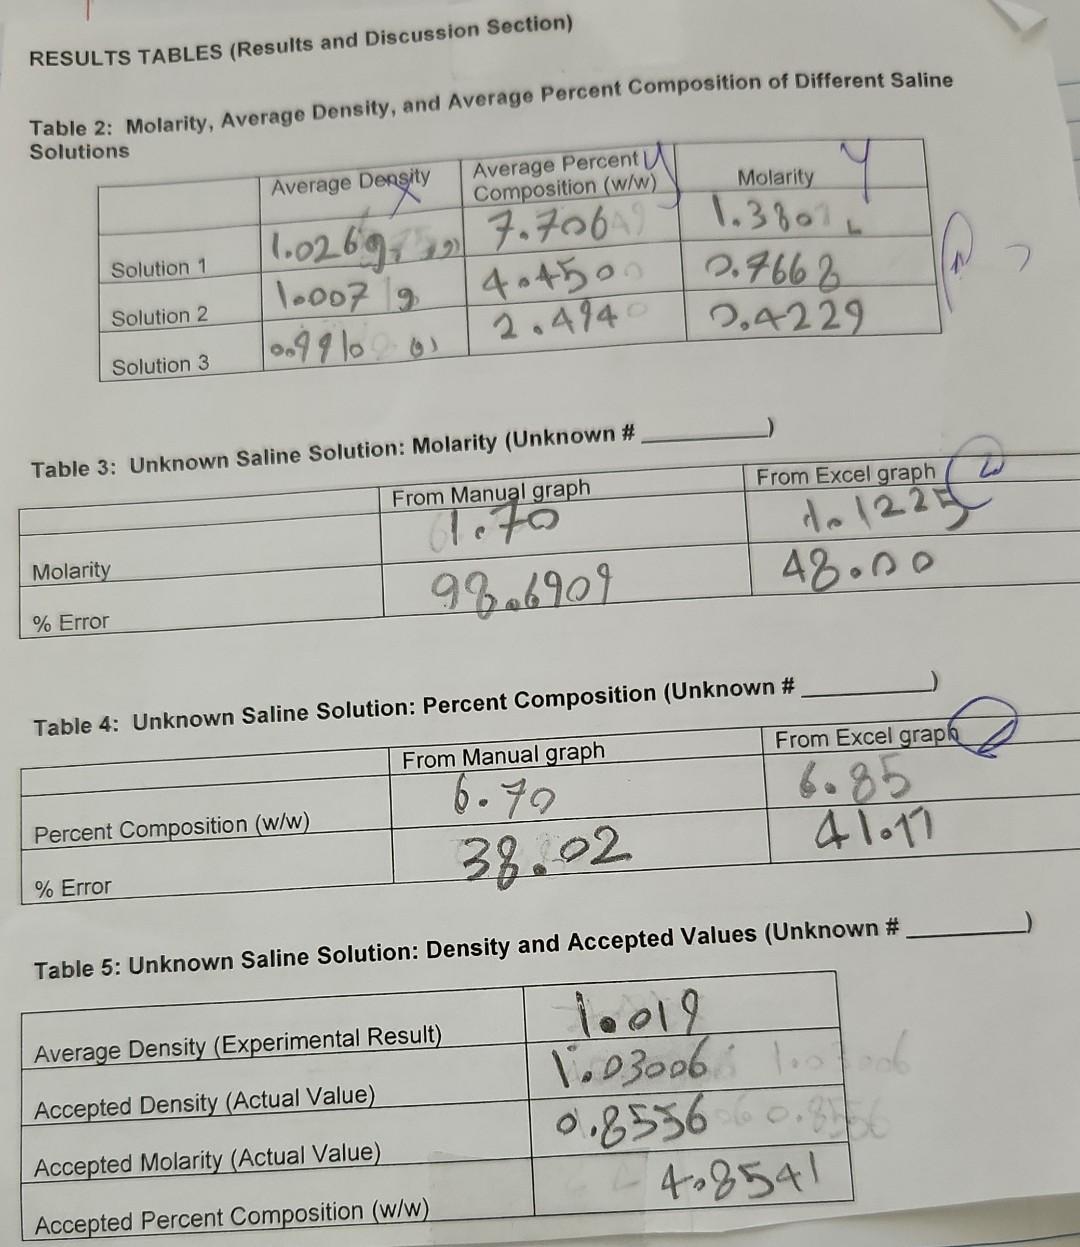 RESULTS TABLES (Results and Discussion Section)
Table 2: Molarity, Average Density, and Average Percent Composition of Different Saline
Solutions
Average Density X
Average Percent y
Composition (w/w)
Molarity y
Solution 1 1.0269 7.706 1.380
Solution 2 1.007 g 4.450 0.7668
Solution 3 0.9910 2.494 0.4229
Table 3: Unknown Saline Solution: Molarity (Unknown # ________)
From Manual graph From Excel graph
Molarity 1.70 1.1225
% Error 98.6909 48.00
Table 4: Unknown Saline Solution: Percent Composition (Unknown # ________)
From Manual graph From Excel graph
Percent Composition (w/w) 6.70 6.85
% Error 38.02 41.17
Table 5: Unknown Saline Solution: Density and Accepted Values (Unknown # ________)
Average Density (Experimental Result) 1.019
Accepted Density (Actual Value) 1.03006
Accepted Molarity (Actual Value) 0.8556
Accepted Percent Composition (w/w) 4.8541